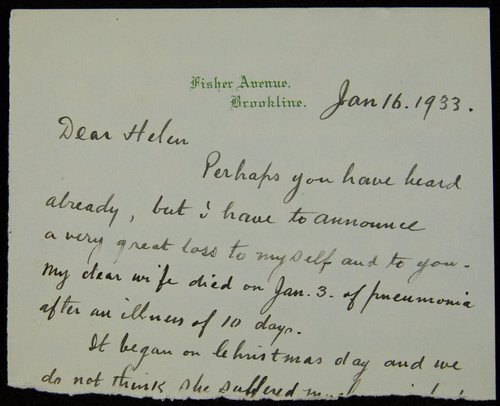 Fisher Avenue.
Brookline.
Jan 16. 1933.
Dear Helen
Perhaps you have heard
already, but i have to announce
a very great loss to myself and to you.
My dear wife died on Jan. 3. of pneumonia
after an illness of 10 days.
It began on Christmas day and we
do not think she suffered